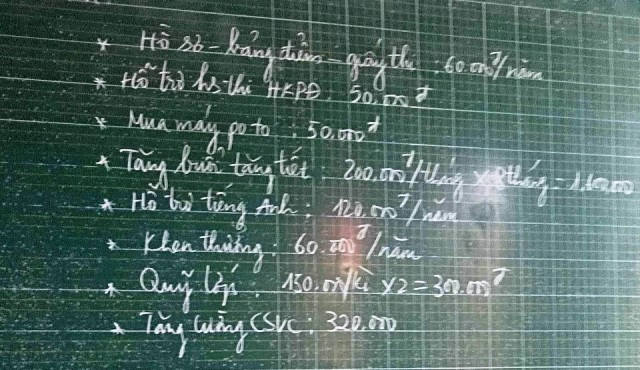 * Hồ sơ - bảng điểm - giấy thi : 60.000đ/năm
* Hỗ trợ hs thi HKPĐ : 50.000đ
* Mua máy poto : 50.000đ
* Tăng buổi tăng tiết : 200.000đ/tháng x 8 tháng = 1.600.000
* Hỗ trợ tiếng Anh : 120.000đ/năm
* Khen thưởng : 60.000đ/năm
* Quỹ lớp : 150.000/kì x 2 = 300.000đ
* Tăng cường CSVC : 320.000